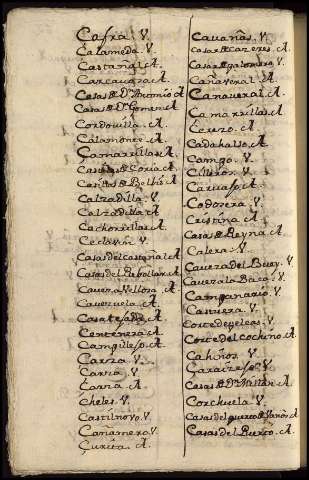 Cafra. V.
Calameda. V.
Castañal. A.
Carcauoso. A.
Casas de Dn. Antonio. A
Casas de Dn. Gomez. A
Cordovilla. A.
Calamonte. A.
Çamarrillas. A.
Casillas de Coria. A.
Casitas de Beluis. A
Calzadilla. V.
Calzadilla. A.
Cachorrillas. A.
Ceclavin. V.
Casas del castañal. A
Casas del Rebollar. A
Cauezavellosa. A.
Cauezuela. A.
Casatejada. A.
Centenera. A
Camguleso. A.
Carza. V.
Çarza. V
Çarza. A
Cheles. V.
Castilnovo. V.
Cañamero. V.
Çurita. A.
Cauañas. V.
Casar de cazeres. A.
Casar de palomero. V.
Cañaveral. A
Canaveral. A
Camarrillas. A
Cerezo. A.
Cadahalso. A.
Campo. V.
Cilleros. V.
Caruaso. A
Codosera. V.
Cristina. A
Casas de Reyna. A
Calera. V.
Caueza del Buey. V.
Caueza la Baca. V
Campanario. V.
Castuera. V.
Corte de peleas. V.
Corte del cochino. A.
Cahiños. V.
Casas de Dn. Millan. A
Corchuela. V.
Casas del puerto de Vaños. A
Casas del Puerto. A.